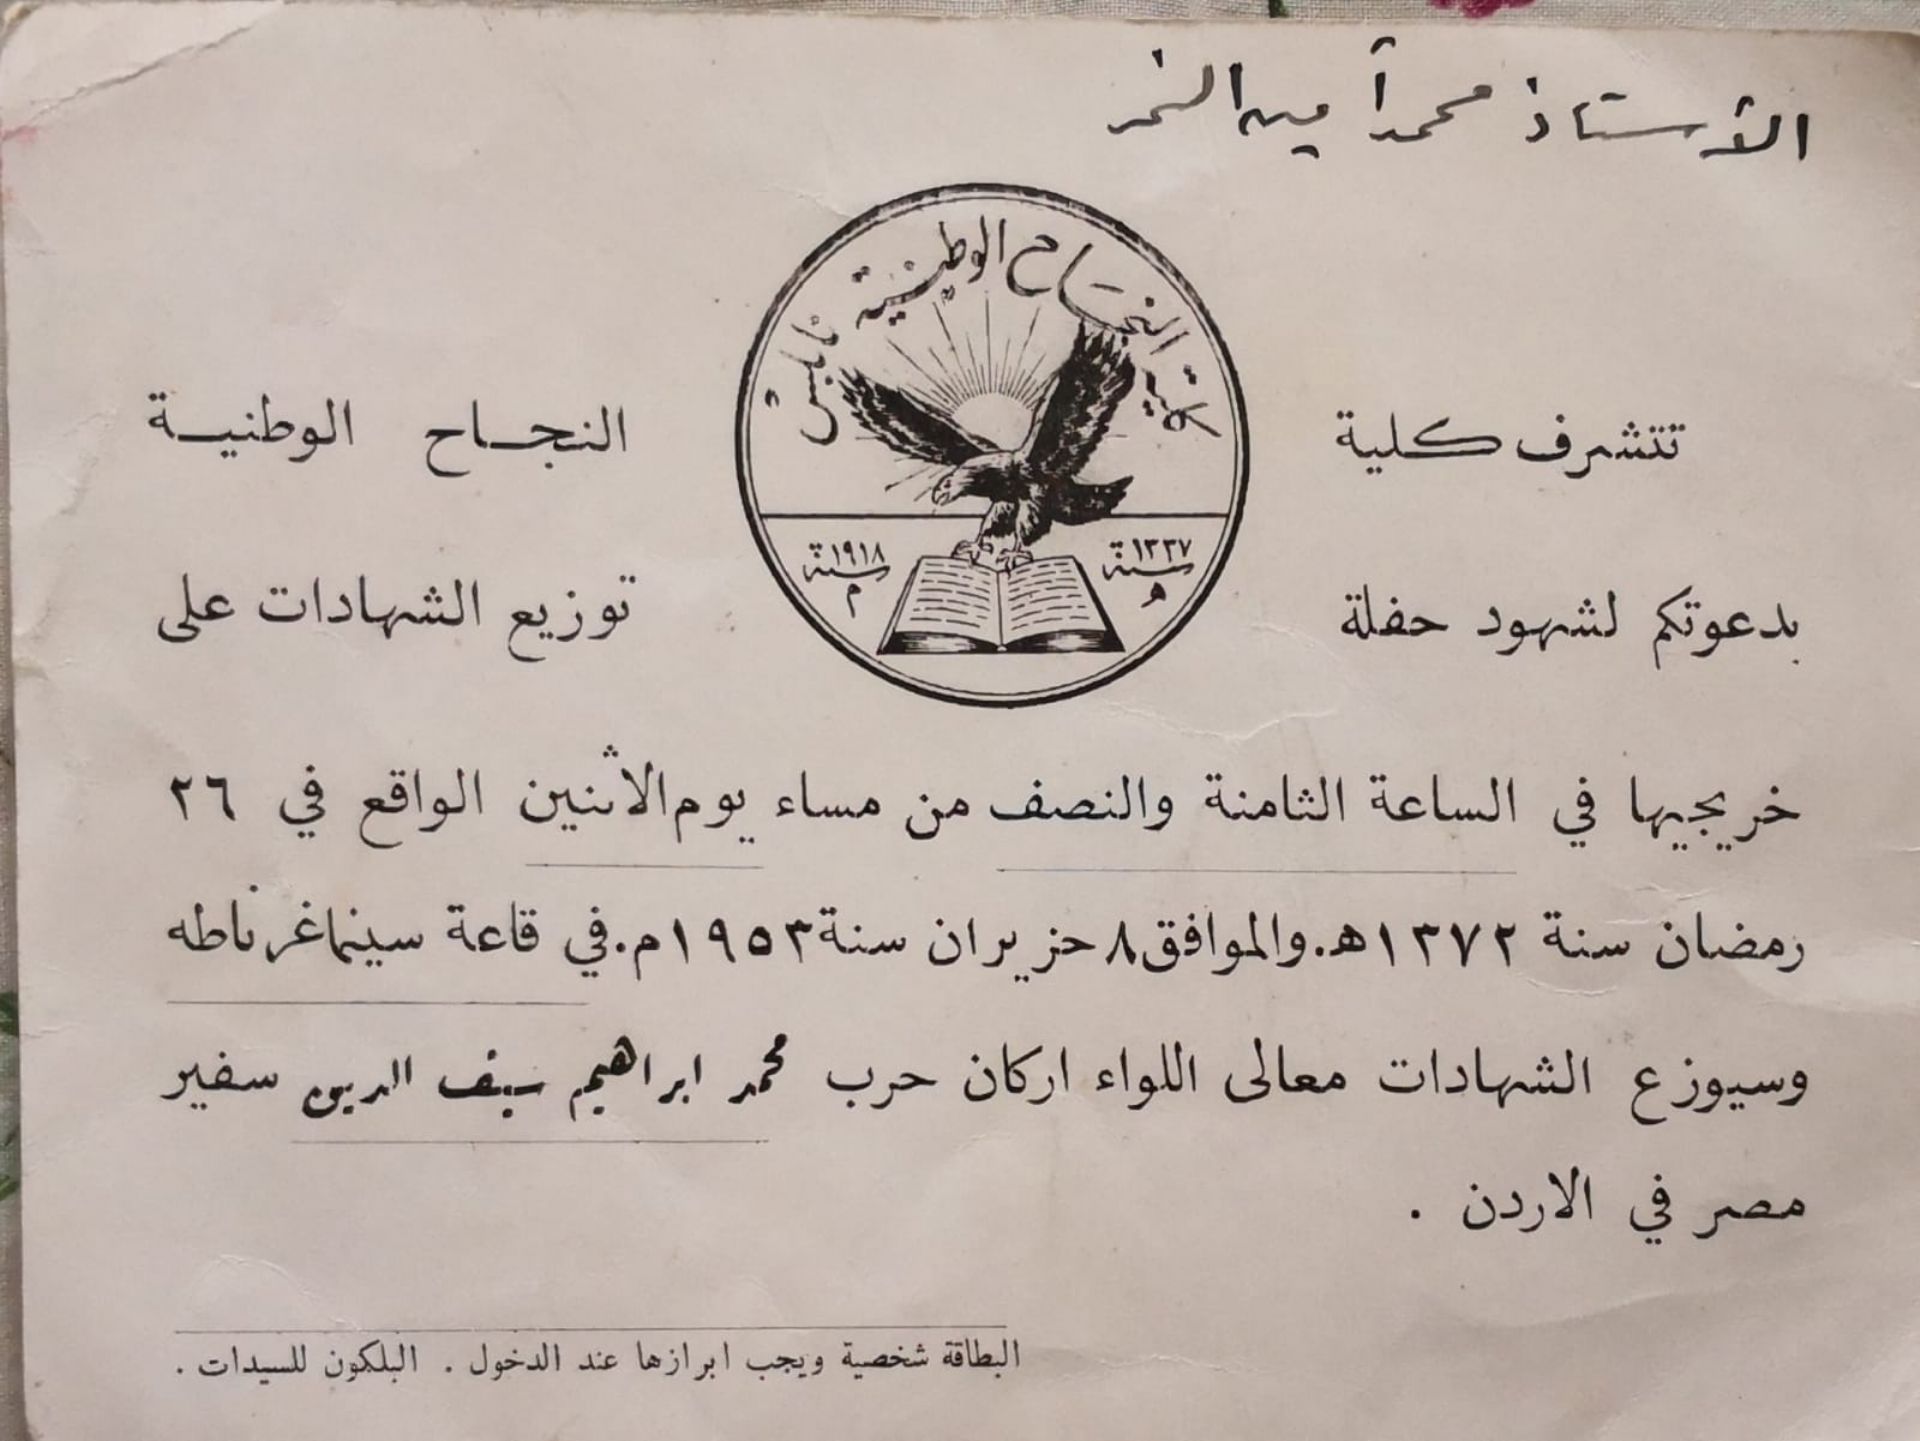 الأستاذ محمد أمين النمر
كلية النجاح الوطنية نابلس
سنة ١٣٣٧ هـ
سنة ١٩١٨ م
تتشرف كلية النجاح الوطنية
بدعوتكم لشهود حفلة توزيع الشهادات على
خريجيها في الساعة الثامنة والنصف من مساء يوم الاثنين الواقع في ٢٦
رمضان سنة ١٣٧٢ هـ. والموافق ٨ حزيران سنة ١٩٥٣ م. في قاعة سينما غرناطه
وسيوزع الشهادات معالى اللواء اركان حرب محمد ابراهيم سيف الدين سفير
مصر في الاردن .
البطاقة شخصية ويجب ابرازها عند الدخول . البلكون للسيدات .